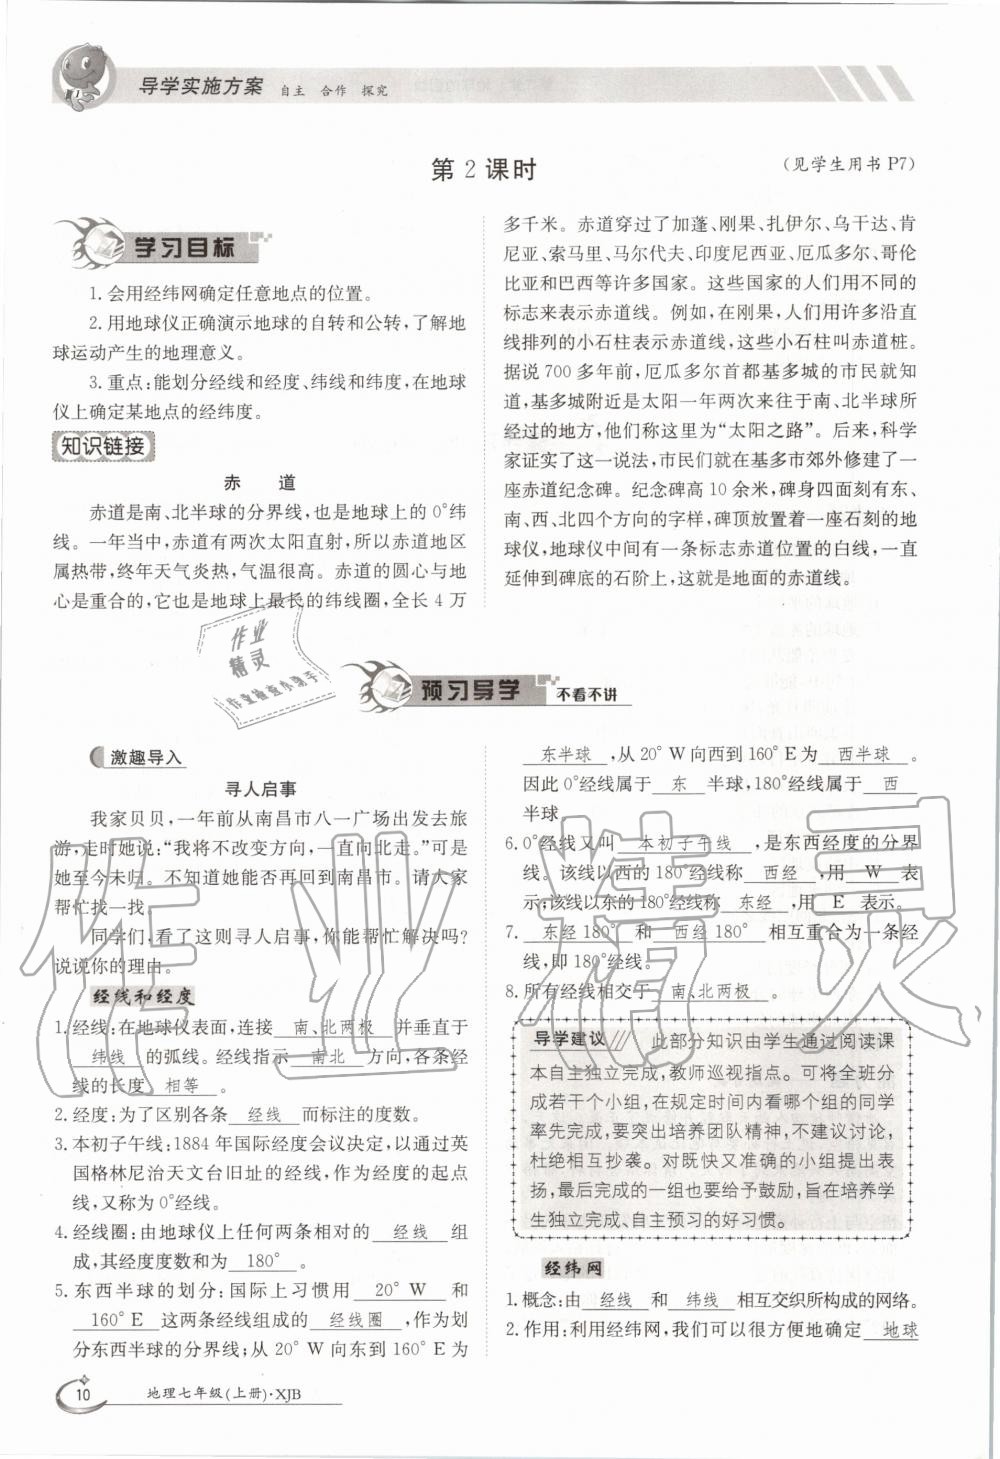 导学实施方案 自主 合作 探究
第2课时
(见学生用书 P7)
学习目标
1. 会用经纬网确定任意地点的位置。
2. 用地球仪正确演示地球的自转和公转,了解地
球运动产生的地理意义。
3. 重点:能划分经线和经度、纬线和纬度,在地球
仪上确定某地点的经纬度。
知识链接
赤 道
赤道是南、北半球的分界线,也是地球上的 0°纬
线。一年当中,赤道有两次太阳直射,所以赤道地区
属热带,终年天气炎热,气温很高。赤道的圆心与地
心是重合的,它也是地球上最长的纬线圈,全长 4 万
多千米。赤道穿过了加蓬、刚果、扎伊尔、乌干达、肯
尼亚、索马里、马尔代夫、印度尼西亚、厄瓜多尔、哥伦
比亚和巴西等许多国家。这些国家的人们用不同的
标志来表示赤道线。例如,在刚果,人们用许多沿直
线排列的小石柱表示赤道线,这些小石柱叫赤道桩。
据说 700 多年前,厄瓜多尔首都基多城的市民就知
道,基多城附近是太阳一年两次来往于南、北半球所
经过的地方,他们称这里为“太阳之路”。后来,科学
家证实了这一说法,市民们就在基多市郊外修建了一
座赤道纪念碑。纪念碑高 10 余米,碑身四面刻有东、
南、西、北四个方向的字样,碑顶放置着一座石刻的地
球仪,地球仪中间有一条标志赤道位置的白线,一直
延伸到碑底的石阶上,这就是地面的赤道线。
作业
精灵
作业检查小助手
预习导学 不看不讲
激趣导入
寻人启事
我家贝贝,一年前从南昌市八一广场出发去旅
游,走时她说:“我将不改变方向,一直向北走。”可是
她至今未归。不知道她能否再回到南昌市。请大家
帮忙找一找。
同学们,看了这则寻人启事,你能帮忙解决吗?
说说你的理由。
经线和经度
1. 经线:在地球仪表面,连接 南、北两极 并垂直于
纬线 的弧线。经线指示 南北 方向,各条经
线的长度 相等 。
2. 经度:为了区别各条 经线 而标注的度数。
3. 本初子午线:1884 年国际经度会议决定,以通过英
国格林尼治天文台旧址的经线,作为经度的起点
线,又称为 0°经线。
4. 经线圈:由地球仪上任何两条相对的 经线 组
成,其经度度数和为 180° 。
5. 东西半球的划分:国际上习惯用 20° W 和
160° E 这两条经线组成的 经线圈 ,作为划
分东西半球的分界线;从 20° W 向东到 160° E 为
东半球 ,从 20° W 向西到 160° E 为 西半球 。
因此 0°经线属于 东 半球,180°经线属于 西
半球。
6. 0°经线又叫 本初子午线 ,是东西经度的分界
线。该线以西的 180°经线称 西经 ,用 W 表
示;该线以东的 180°经线称 东经 ,用 E 表示。
7. 东经 180° 和 西经 180° 相互重合为一条经
线,即 180°经线。
8. 所有经线相交于 南、北两极 。
导学建议 此部分知识由学生通过阅读课
本自主独立完成,教师巡视指点。可将全班分
成若干个小组,在规定时间内看哪个组的同学
率先完成,要突出培养团队精神,不建议讨论,
杜绝相互抄袭。对既快又准确的小组提出表
扬,最后完成的一组也要给予鼓励,旨在培养学
生独立完成、自主预习的好习惯。
经纬网
1. 概念:由 经线 和 纬线 相互交织所构成的网络。
2. 作用:利用经纬网,我们可以很方便地确定 地球
作业精灵
10 地理七年级(上册)·XJB